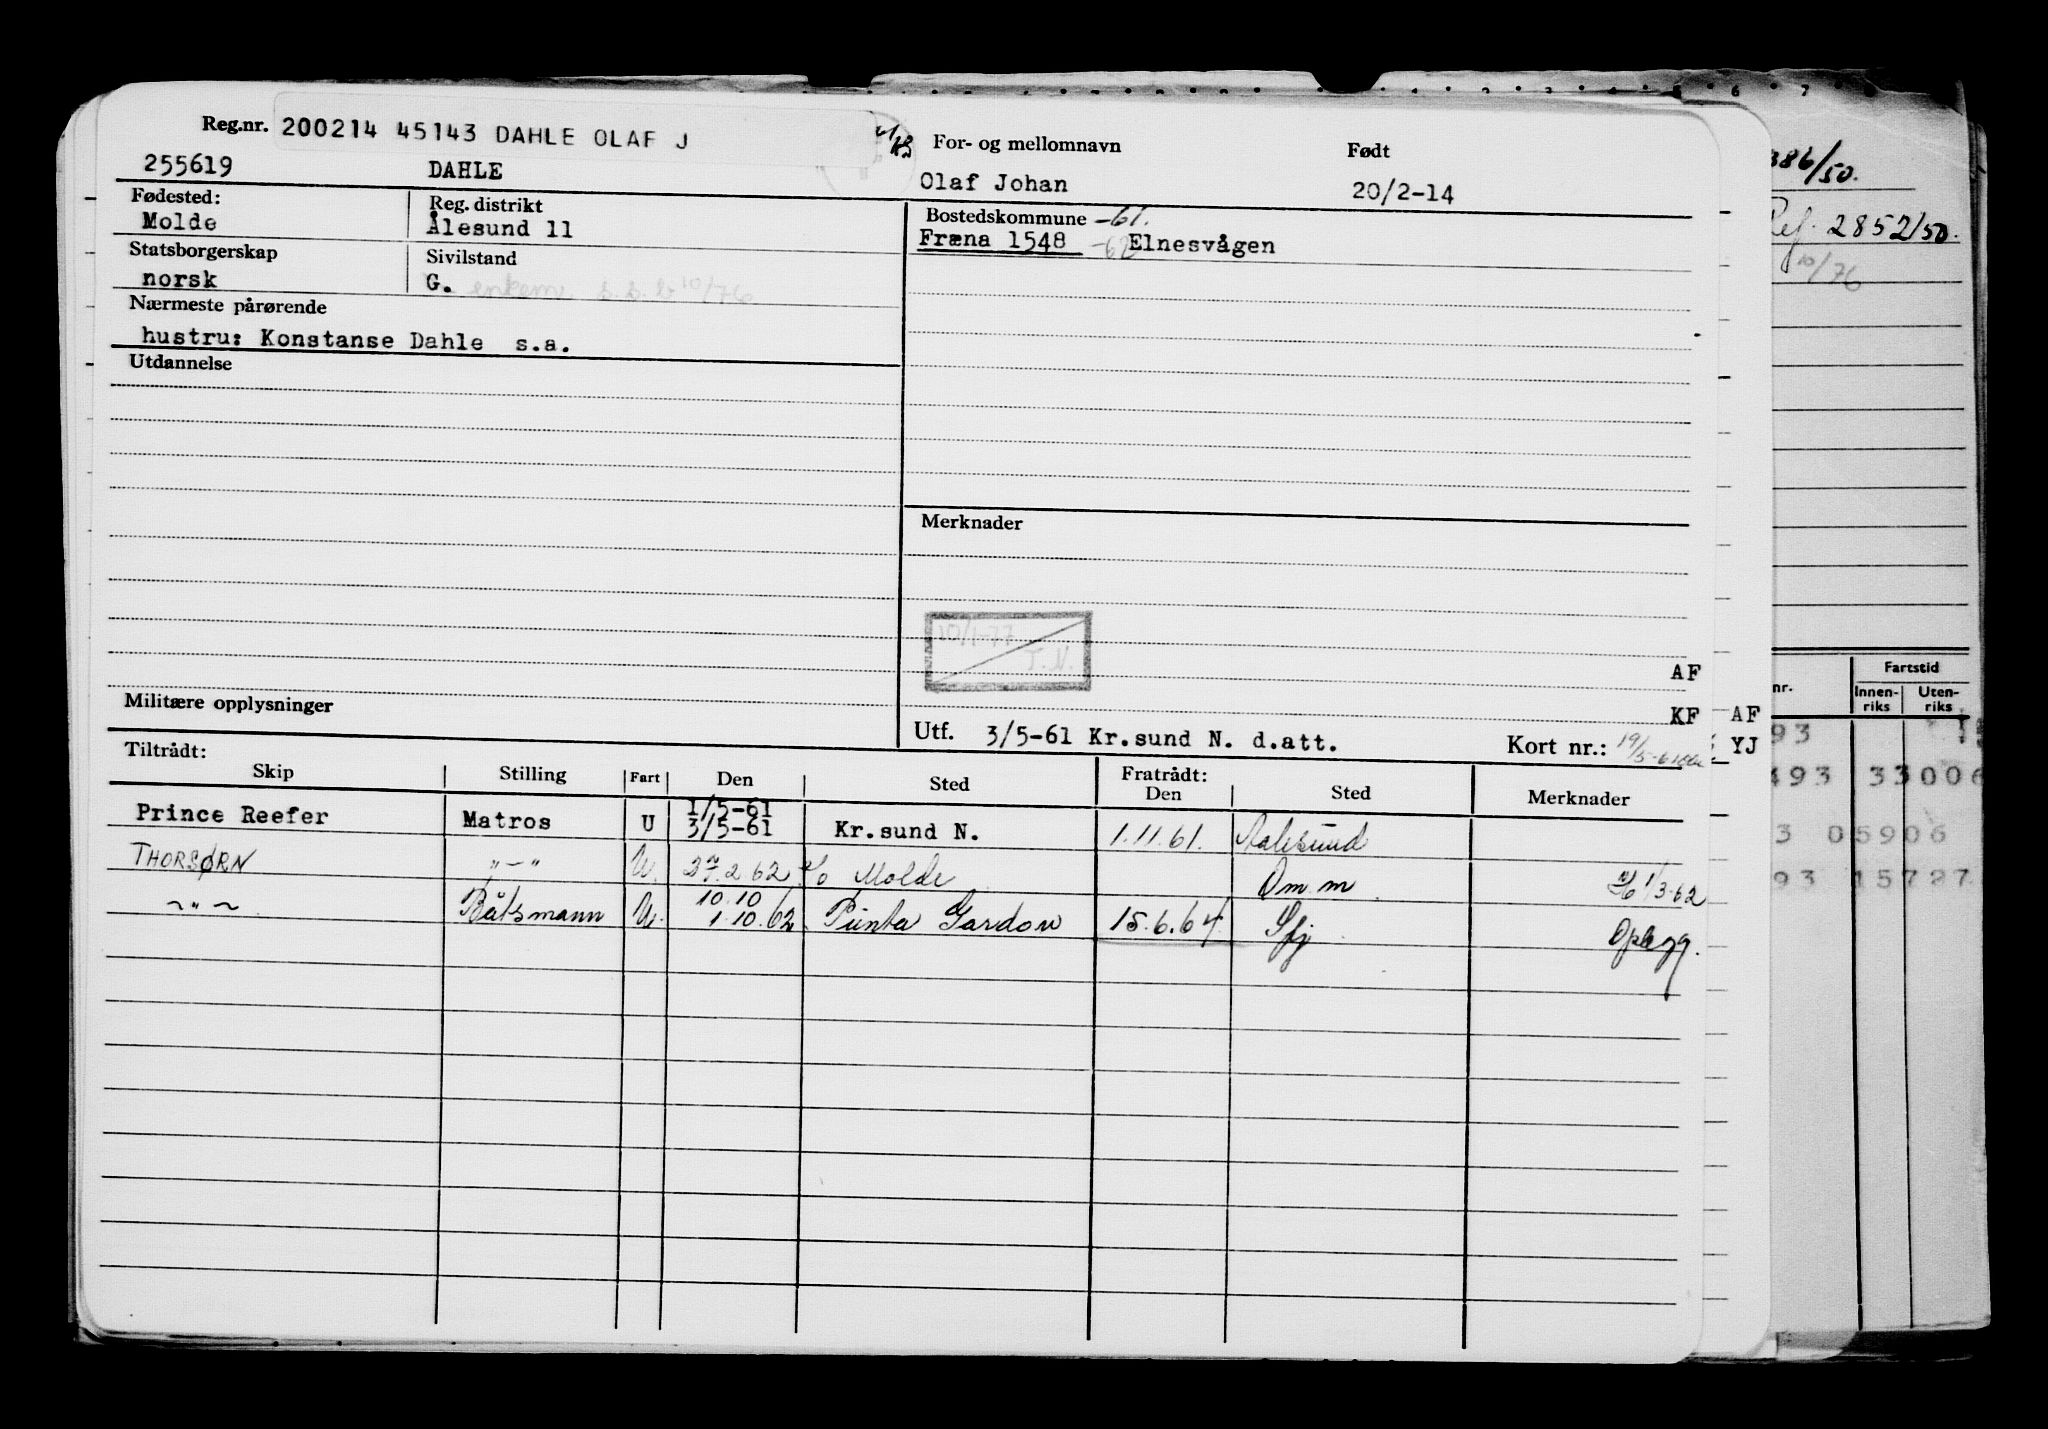 Reg.nr. 200214 45143 DAHLE OLAF J
For- og mellomnavn
Født
255619 DAHLE
Olaf Johan
20/2-14
Fødested:
Molde
Reg. distrikt
Ålesund 11
Bostedskommune -61.
Fræna 1548 -62 Elnesvågen
Statsborgerskap
norsk
Sivilstand
G. enkem. 10/76
Nærmeste pårørende
hustru: Konstanse Dahle s.a.
Utdannelse
Merknader
10/1-77
T.N.
AF
KF
Militære opplysninger
Utf. 3/5-61 Kr.sund N. d.att.
Kort nr.: 19/5-61
Tiltrådt:
Fratrådt:
Skip Stilling Fart Den Sted Den Sted Merknader
Prince Reefer Matros U 1/5-61 3/5-61 Kr.sund N. 1.11.61. Aalesund
THORSØRN "-" U. 27.2.62 Molde Om.m. 1/3-62
-"- Båtsmann U. 10.10 1.10.62 Punta Gardon 15.6.64. Sfj Opbygg.
386/50.
Ref. 2852/50.
10/76
Fartstid
nr. Innen-riks Uten-riks
AF
YJ
93
493 33006
3 05906
93 15727